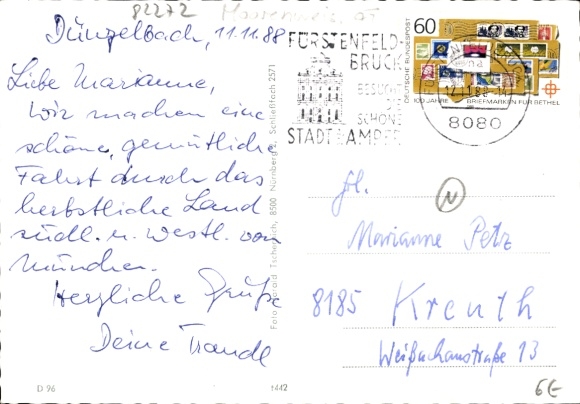 82272
Dünzelbach, 11.11.88
Liebe Marianne,
wir machen eine
schöne, gemütliche
Fahrt durch das
herbstliche Land
südl. u. westl. von
München.
Herzliche Grüße
Deine Traudl
D 96
1442
Foto Harald Tschenisch, 8500 Nürnberg 2, Schließfach 2571
FÜRSTENFELD-
BRUCK
BESUCHT
DIE
SCHÖNE
STADT AMPER
60
DEUTSCHE BUNDESPOST
100 JAHRE BRIEFMARKEN FÜR BETHEL
8080
Frl.
N
Marianne Petz
8185 Kreuth
Weißachaustraße 13
6€